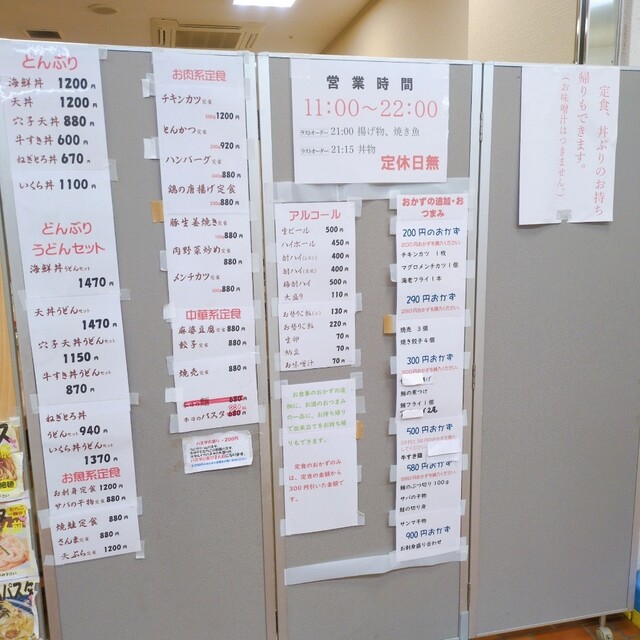 どんぶり
海鮮丼 1200円
天丼 1200円
穴子天丼 880円
牛すき丼 600円
ねぎとろ丼 670円
いくら丼 1100円
どんぶり
うどんセット
海鮮丼うどんセット
1470円
天丼うどんセット
1470円
穴子天丼うどんセット
1150円
牛すき丼うどんセット
870円
ねぎとろ丼
うどんセット940円
いくら丼うどんセット
1370円
お魚系定食
お刺身定食 1200円
サバの干物定食 880円
焼鮭定食 880円
さんま定食 880円
天ぷら定食 1200円
お肉系定食
チキンカツ定食
1200円
とんかつ定食
920円
ハンバーグ定食
880円
鶏の唐揚げ定食
880円
豚生姜焼き定食
880円
肉野菜炒め定食
880円
メンチカツ定食
880円
中華系定食
麻婆豆腐定食 880円
餃子定食 880円
焼売定食 880円
680円
本日のパスタ 680円
営業時間
11:00～22:00
ラストオーダー 21:00 揚げ物、焼き魚
ラストオーダー 21:15 丼物
定休日無
アルコール
生ビール 500円
ハイボール 450円
酎ハイ 400円
酎ハイ 400円
梅酎ハイ 500円
大盛り 110円
お替りご飯 130円
お替りご飯 220円
生卵 70円
納豆 70円
お味噌汁 70円
お食事のおかずの追
加に、お酒のおつまみ
の一品に、お持ち帰り
で出来立てをお持ち帰
りもできます。
定食のおかずのみ
は、定食の金額から
300円引いた金額で
す。
おかずの追加・お
つまみ
200円のおかず
チキンカツ 1枚
マグロメンチカツ1個
海老フライ1本
290円おかず
焼売 3個
焼き餃子4個
300円おかず
鯛の煮つけ
鯵フライ1個
500円おかず
牛すき鍋
580円おかず
鮪のぶつ切り100g
サバの干物
鮭の切り身
サンマ干物
900円おかず
お刺身盛り合わせ
定食、丼ぶりのお持ち
帰りもできます。
（お味噌汁はつきません。）